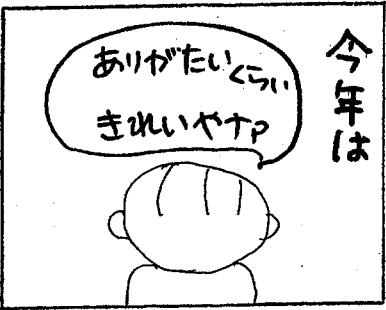 今年は
ありがたいくらい
きれいやナァ